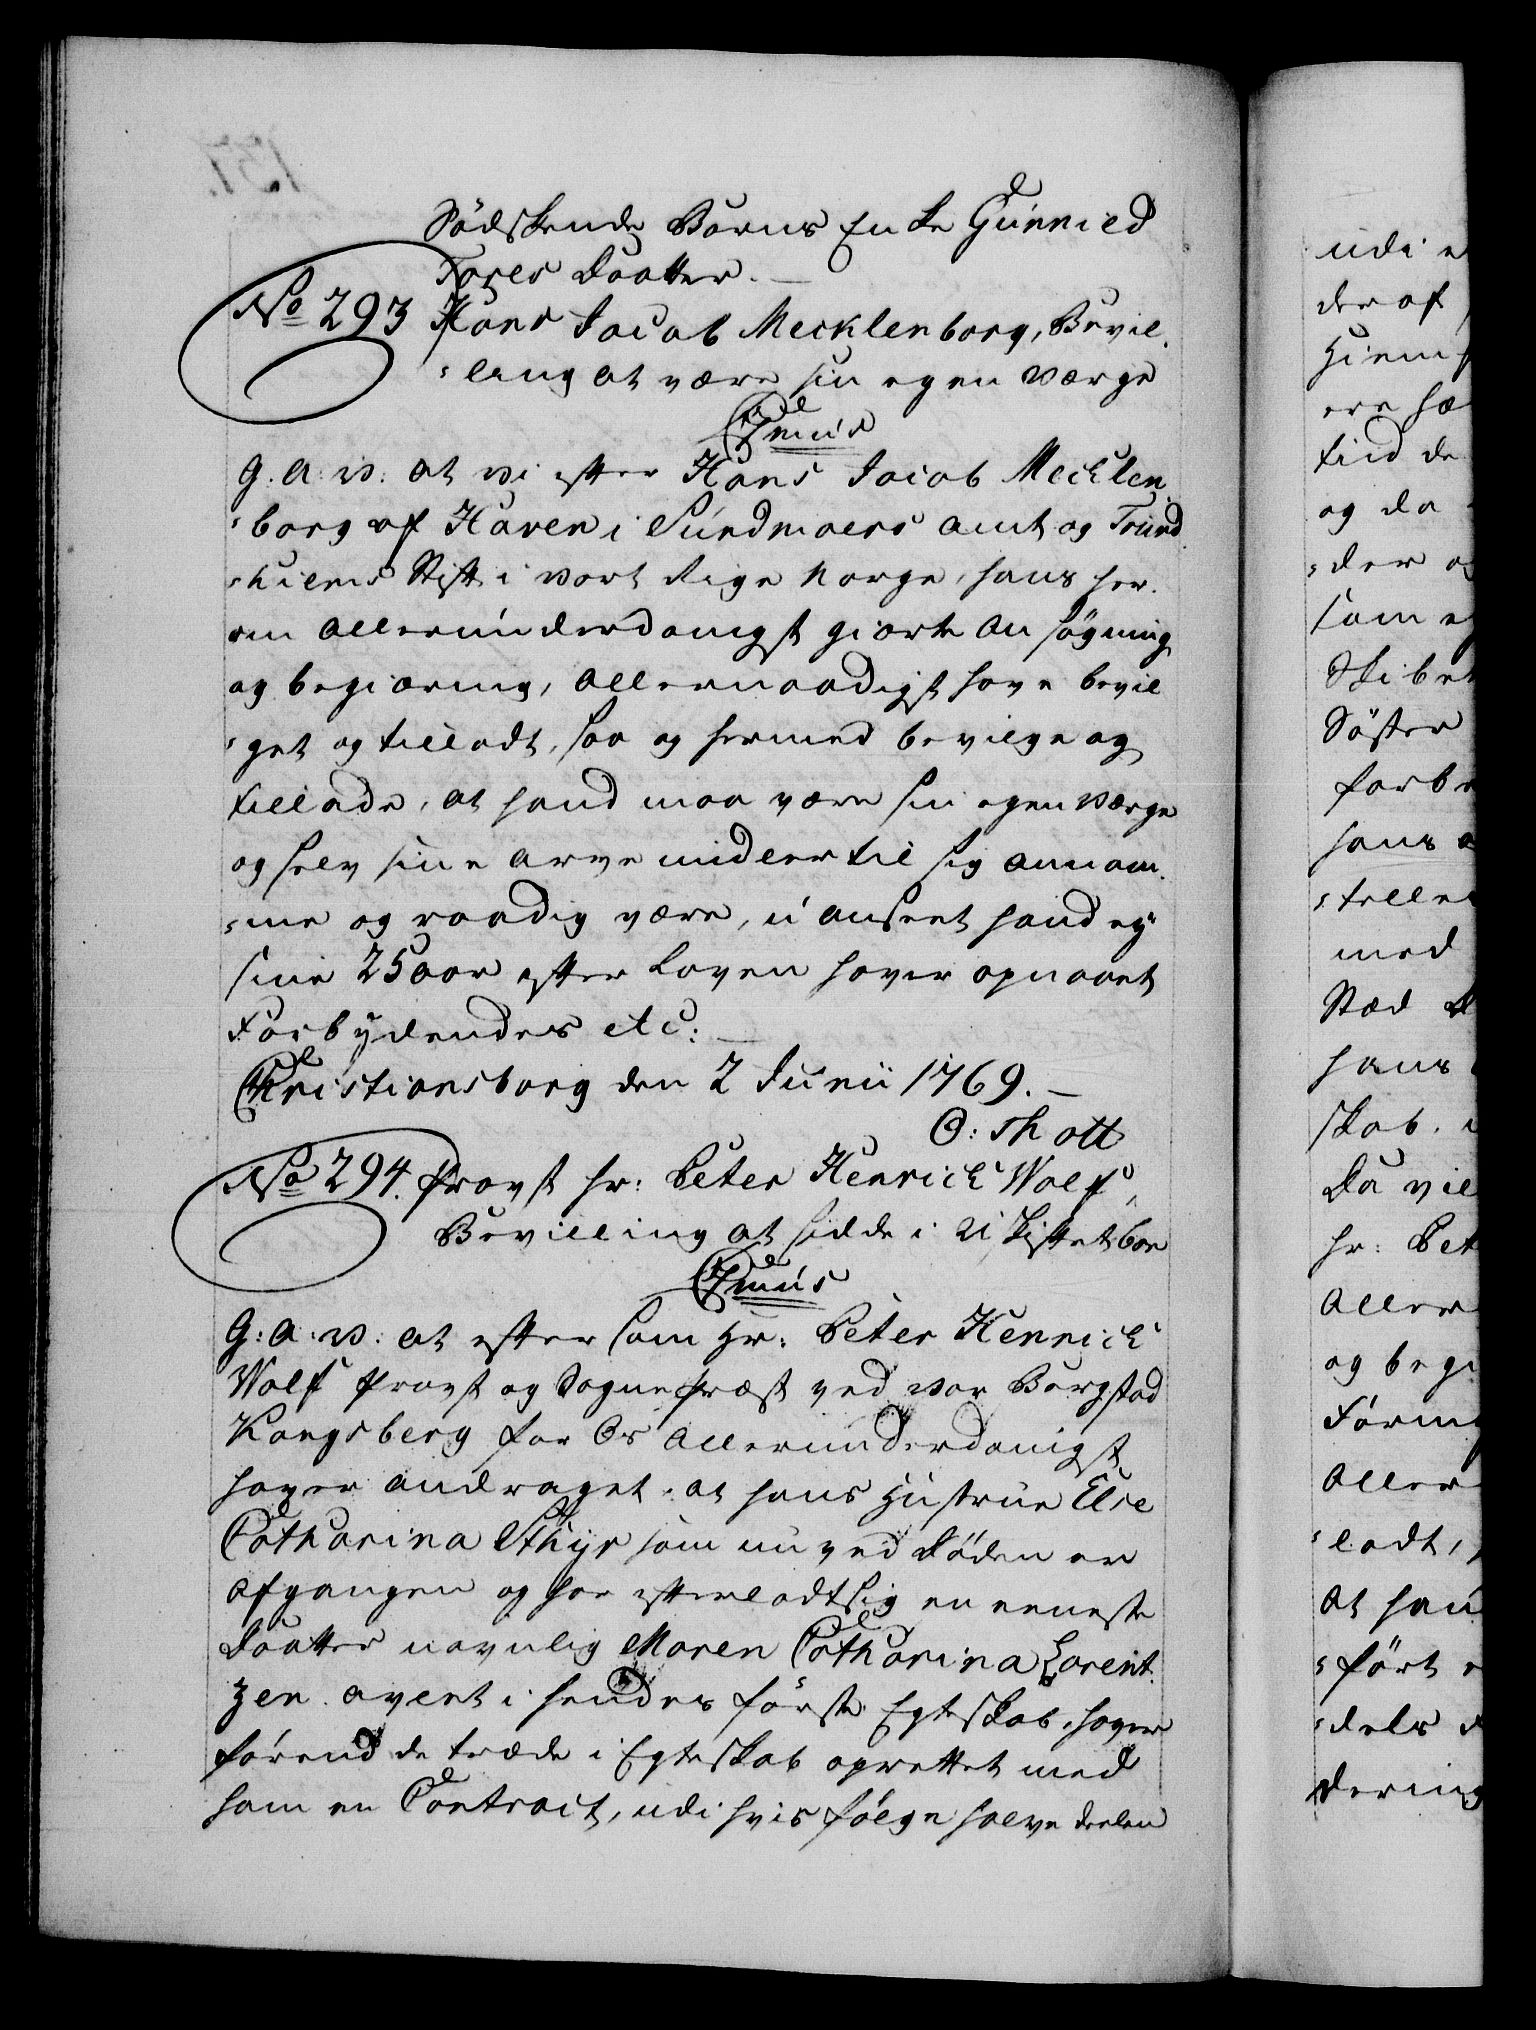 Södskende Børns Enke Gunnild
Tores Daatter. —
No 293 Hans Jacob Mecklenborg, Bevil¬
¬ling at være sin egen Værge
C7mus
G. A. V. at Vi efter Hans Jacob Mecklen¬
¬borg af Haven i Sundmoers Amt og Trund¬
¬hiems Stift i vort Rige Norge, hans her¬
om allerunderdanigst giorte Ansøgning
og begiæring, allernaadigst have bevil¬
¬get og tilladt, saa og hermed bevilge og
tillade, at hand maa være sin egen Værge
og selv sine Arve midler til sig annam¬
¬me og raadig være, uanseet hand ey
sine 25 aar efter Loven haver opnaaet
Forbydendes etc: —
Christiansborg den 2 Junii 1769. —
O: Thott
No 294. Provst hr: Peter Henrich Wolf,
Bevilling at sidde i uskiftet boe
C7mus
G: A: V: at eftersom Hr: Peter Henrich
Wolf Provst og Sognepræst ved vor Bergstad
Kongsberg for Os allerunderdanigst
haver andraget, at hans Hustrue Else
Catharina Sthyr som nu ved Døden er
afgangen og har efterladt sig en eeneste
Daatter navnlig Maren Catharina Lorent¬
zen avlet i hendes første Egteskab, haver
førend de træde i Egteskab oprettet med
ham en Contract, udi hvis følge halve deelen
udi e
der af
Hiem
ere hæ
tind de
og da
¬der og
som e
Skibet
Søster
forbe
hans
¬telle
med
Stæd
hans
skab.
Da vil
hr: Pet
Aller
og begi
Føring
Aller
¬ladt,
at han
¬ført
¬dels
dering